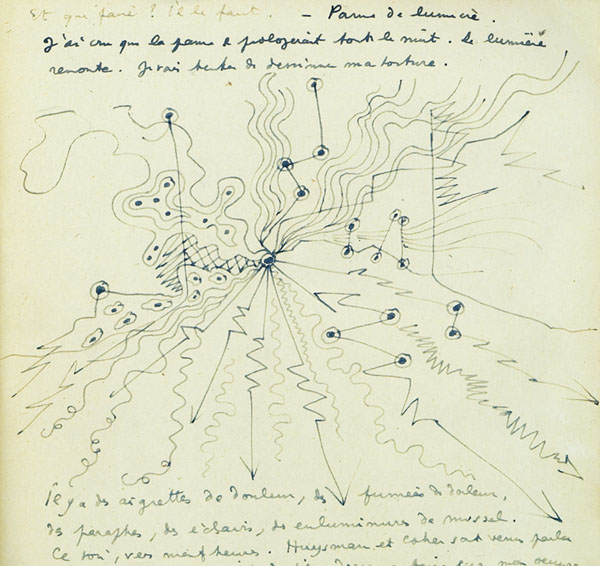 Et que faire? Il le faut. — Panne de lumière.
J'ai cru que la panne se prolongerait toute la nuit. La lumière
remonte. Je vais tenter de dessiner ma torture.
Il y a des aigrettes de douleur, des fumées de douleur,
des paraphes, des éclairs, des enluminures de missel.
Ce soir, vers neuf heures. Huysman et cohen sont venus parler
que mon oeuvre